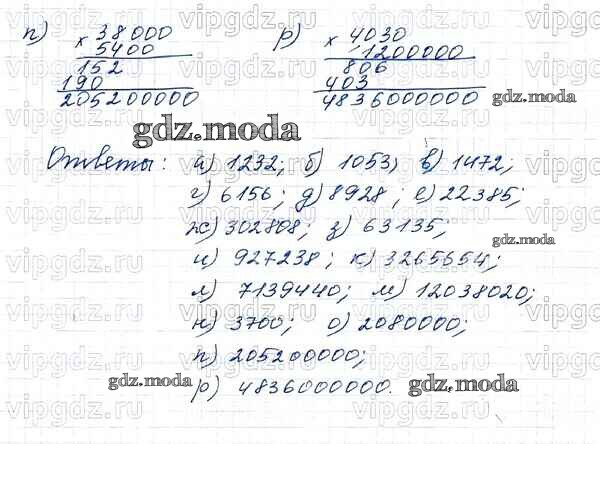 п) × 38000 р) × 4030
5400 1200000
152 806
190 403
205200000 4836000000
gdz.moda
Ответы: а) 1232; б) 1053; в) 1472;
г) 6156; д) 8928; е) 22385;
ж) 302808; з) 63135;
gdz.moda
и) 927238; к) 3265654;
л) 7139440; м) 12038020;
н) 3700; о) 2080000;
п) 205200000;
р) 4836000000.
gdz.moda
gdz.moda
vipgdz.ru